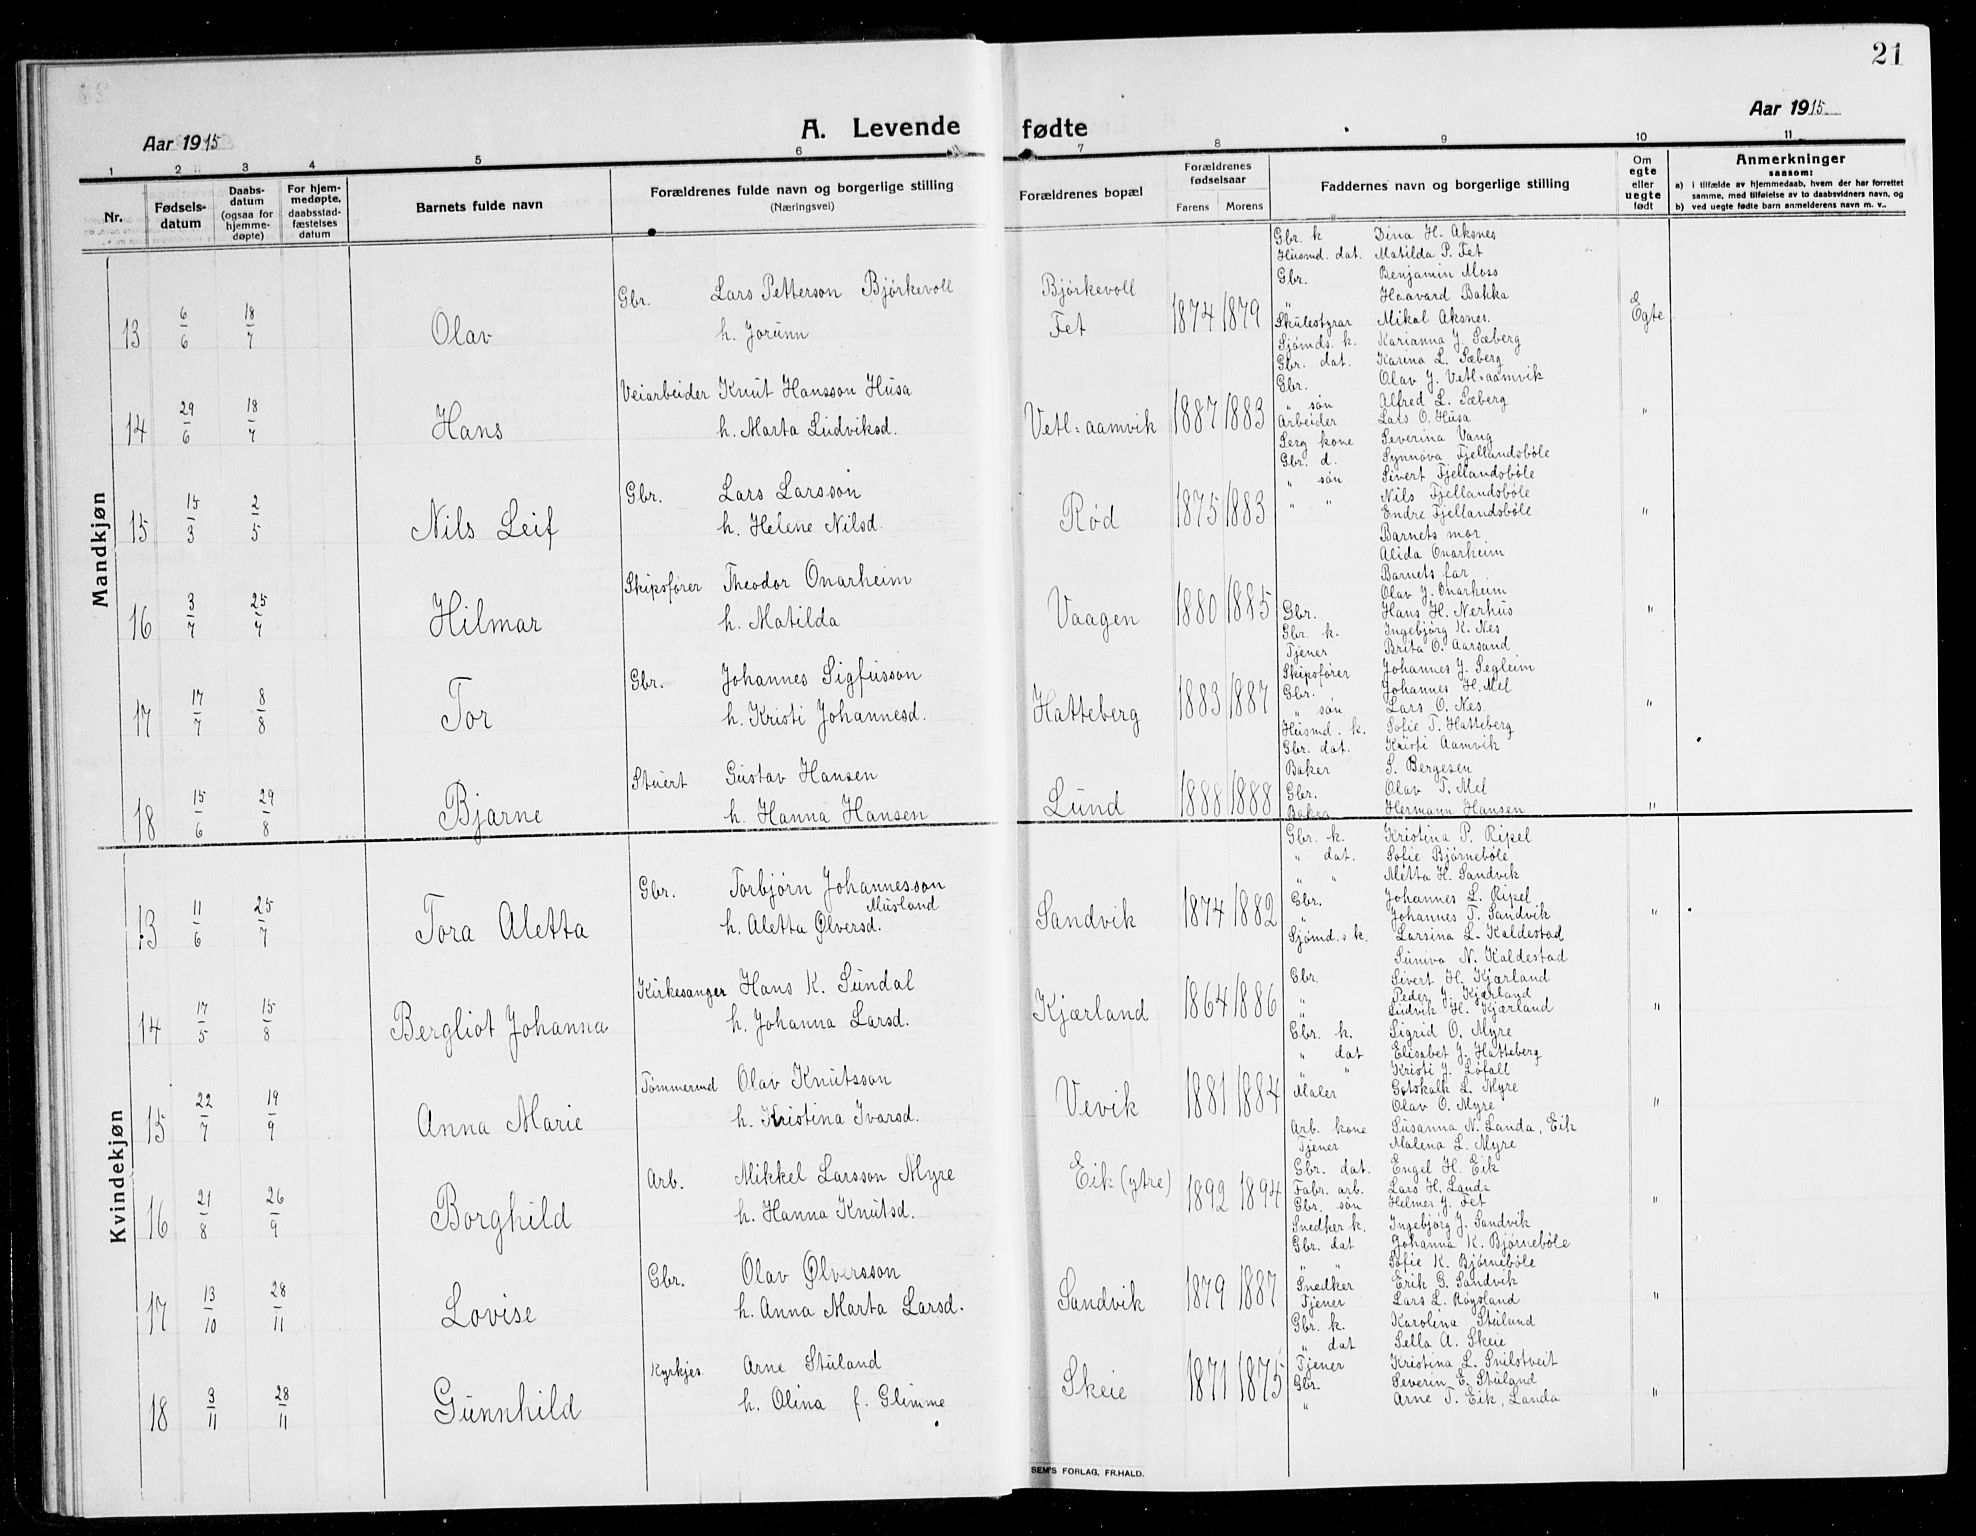 21
Aar 1915
A. Levende fødte
Aar 1915
1 2 3 4 5 6 7 8 9 10 11
Nr.
Fødsels-
datum
Daabs-
datum
(ogsaa for
hjemme-
døpte)
For hjem-
medøpte.
daabsstad-
fæstelses
datum
Barnets fulde navn
Forældrenes fulde navn og borgerlige stilling
(Næringsvei)
Forældrenes bopæl
Forældrenes
fødselsaar
Farens Morens
Faddernes navn og borgerlige stilling
Om
egte
eller
uegte
født
Anmerkninger
saasom:
a) i tilfælde av hjemmedaab, hvem der har forrettet
samme, med tilføielse av to daabsvidners navn, og
b) ved uegte fødte barn anmelderens navn m. v..
Mandkjøn
13 6/6 18/7 Olav
Gbr. Lars Petterson Bjørkevoll
h. Jorunn
Bjørkevoll
Fet
1874 1879
Gbr. k Dina H. Aksnes
Husmd. dat. Matilda P. Fet
Gbr. Benjamin Moss
" Haavard Bakka
Skulestyrar Mikal Aksnes.
Egte
14 29/6 18/7 Hans
Veiarbeider Knut Hansson Husa
h. Marta Ludviksd.
Vetl=aamvik
1887 1883
Sjømds. k. Karianna J. Sæberg
Gbr. dat. Karina L. Sæberg
Gbr. Olav J. Vetl=aamvik
" søn Alfred L. Sæberg
Arbeider Lars O. Husa
"
15 15/3 2/5 Nils Leif
Gbr. Lars Larsson
h. Helene Nilsd.
Rød
1875 1883
Serg kone Severina Vang
Gbr. d. Synnøva Fjellandsbøle
" søn Sivert Fjellandsbøle
" " Nils Fjellandsbøle
Endre Fjellandsbøle
"
16 3/7 25/7 Hilmar
Skipsfører Theodor Onarheim
h. Matilda
Vaagen
1880 1885
Barnets mor
Alida Onarheim
Barnets far
Olav J. Onarheim
Gbr. Hans H. Nerhus
"
17 17/7 8/8 Tor
Gbr. Johannes Sigfusson
h. Kristi Johannesd.
Hatteberg
1883 1887
Gbr. k. Ingebjørg K. Nes
Tjener Brita O. Aarsand
Skipsfører Johannes J. Segleim
Gbr. Johannes H. Mel
" søn Lars O. Nes
"
18 15/6 29/8 Bjarne
Stuert Gustav Hansen
h. Hanna Hansen
Lund
1888 1888
Husmd. k. Sofie T. Hatteberg
Gbr. dat. Kristi Aamvik
Baker S. Bergesen
Gbr. Olav T. Mel
Baker Hermann Hansen
"
Kvindekjøn
13 11/6 25/7 Tora Aletta
Gbr. Torbjørn Johannesson
Musland
h. Aletta Ølversd.
Sandvik
1874 1882
Gbr. k. Kristina P. Ripel
" dat. Sofie Bjørnebøle
" " Metta H. Sandvik
Gbr. Johannes L. Ripel
" Johannes T. Sandvik
"
14 17/5 15/8 Bergliot Johanna
Kirkesanger Hans K. Sundal
h. Johanna Larsd.
Kjærland
1864 1886
Sjømd.s k. Larsina L. Kaldestad
Suniva N. Kaldestad
Gbr. Sivert H. Kjærland
" Peder J. Kjærland
" Ludvik H. Kjærland
"
15 22/7 19/9 Anna Marie
Tømmermd Olav Knutsson
h. Kristina Ivarsd.
Vevik
1881 1884
Gbr. k. Sigrid O. Myre
" dat Elisabet J. Hatteberg
" " Kristi J. Løfall
Maler Gotskalk L. Myre
Olav O. Myre
"
16 21/8 26/9 Borghild
Arb. Mikkel Larsson Myre
h. Hanna Knutsd.
Eik (ytre)
1892 1894
Arb. kone Susanna N. Landa, Eik
Tjener Malena L. Myre
Gbr. dat. Engel H. Eik
Fabr. arb. Lars H. Landa
Gbr. søn Helmer J. Fet
"
17 13/10 28/11 Lovise
Gbr. Olav Ølversson
h. Anna Marta Larsd.
Sandvik
1879 1887
Snedker k. Ingebjørg J. Sandvik
Gbr. dat Johanna K. Bjørnebøle
" " Sofie K. Bjørnebøle
Snedker Erik G. Sandvik
Tjener Lars L. Røysland
"
18 3/11 28/11 Gunnhild
Kyrkjes. Arne Stuland
h. Olina f. Glimme
Skeie
1871 1875
Gbr. k. Karolina Stuland
" dat Sella A. Skeie
Tjener Kristina L. Snilstveit
Gbr. Severin E. Stuland
" Arne T. Eik, Landa
"
SEM'S FORLAG, FR.HALD.